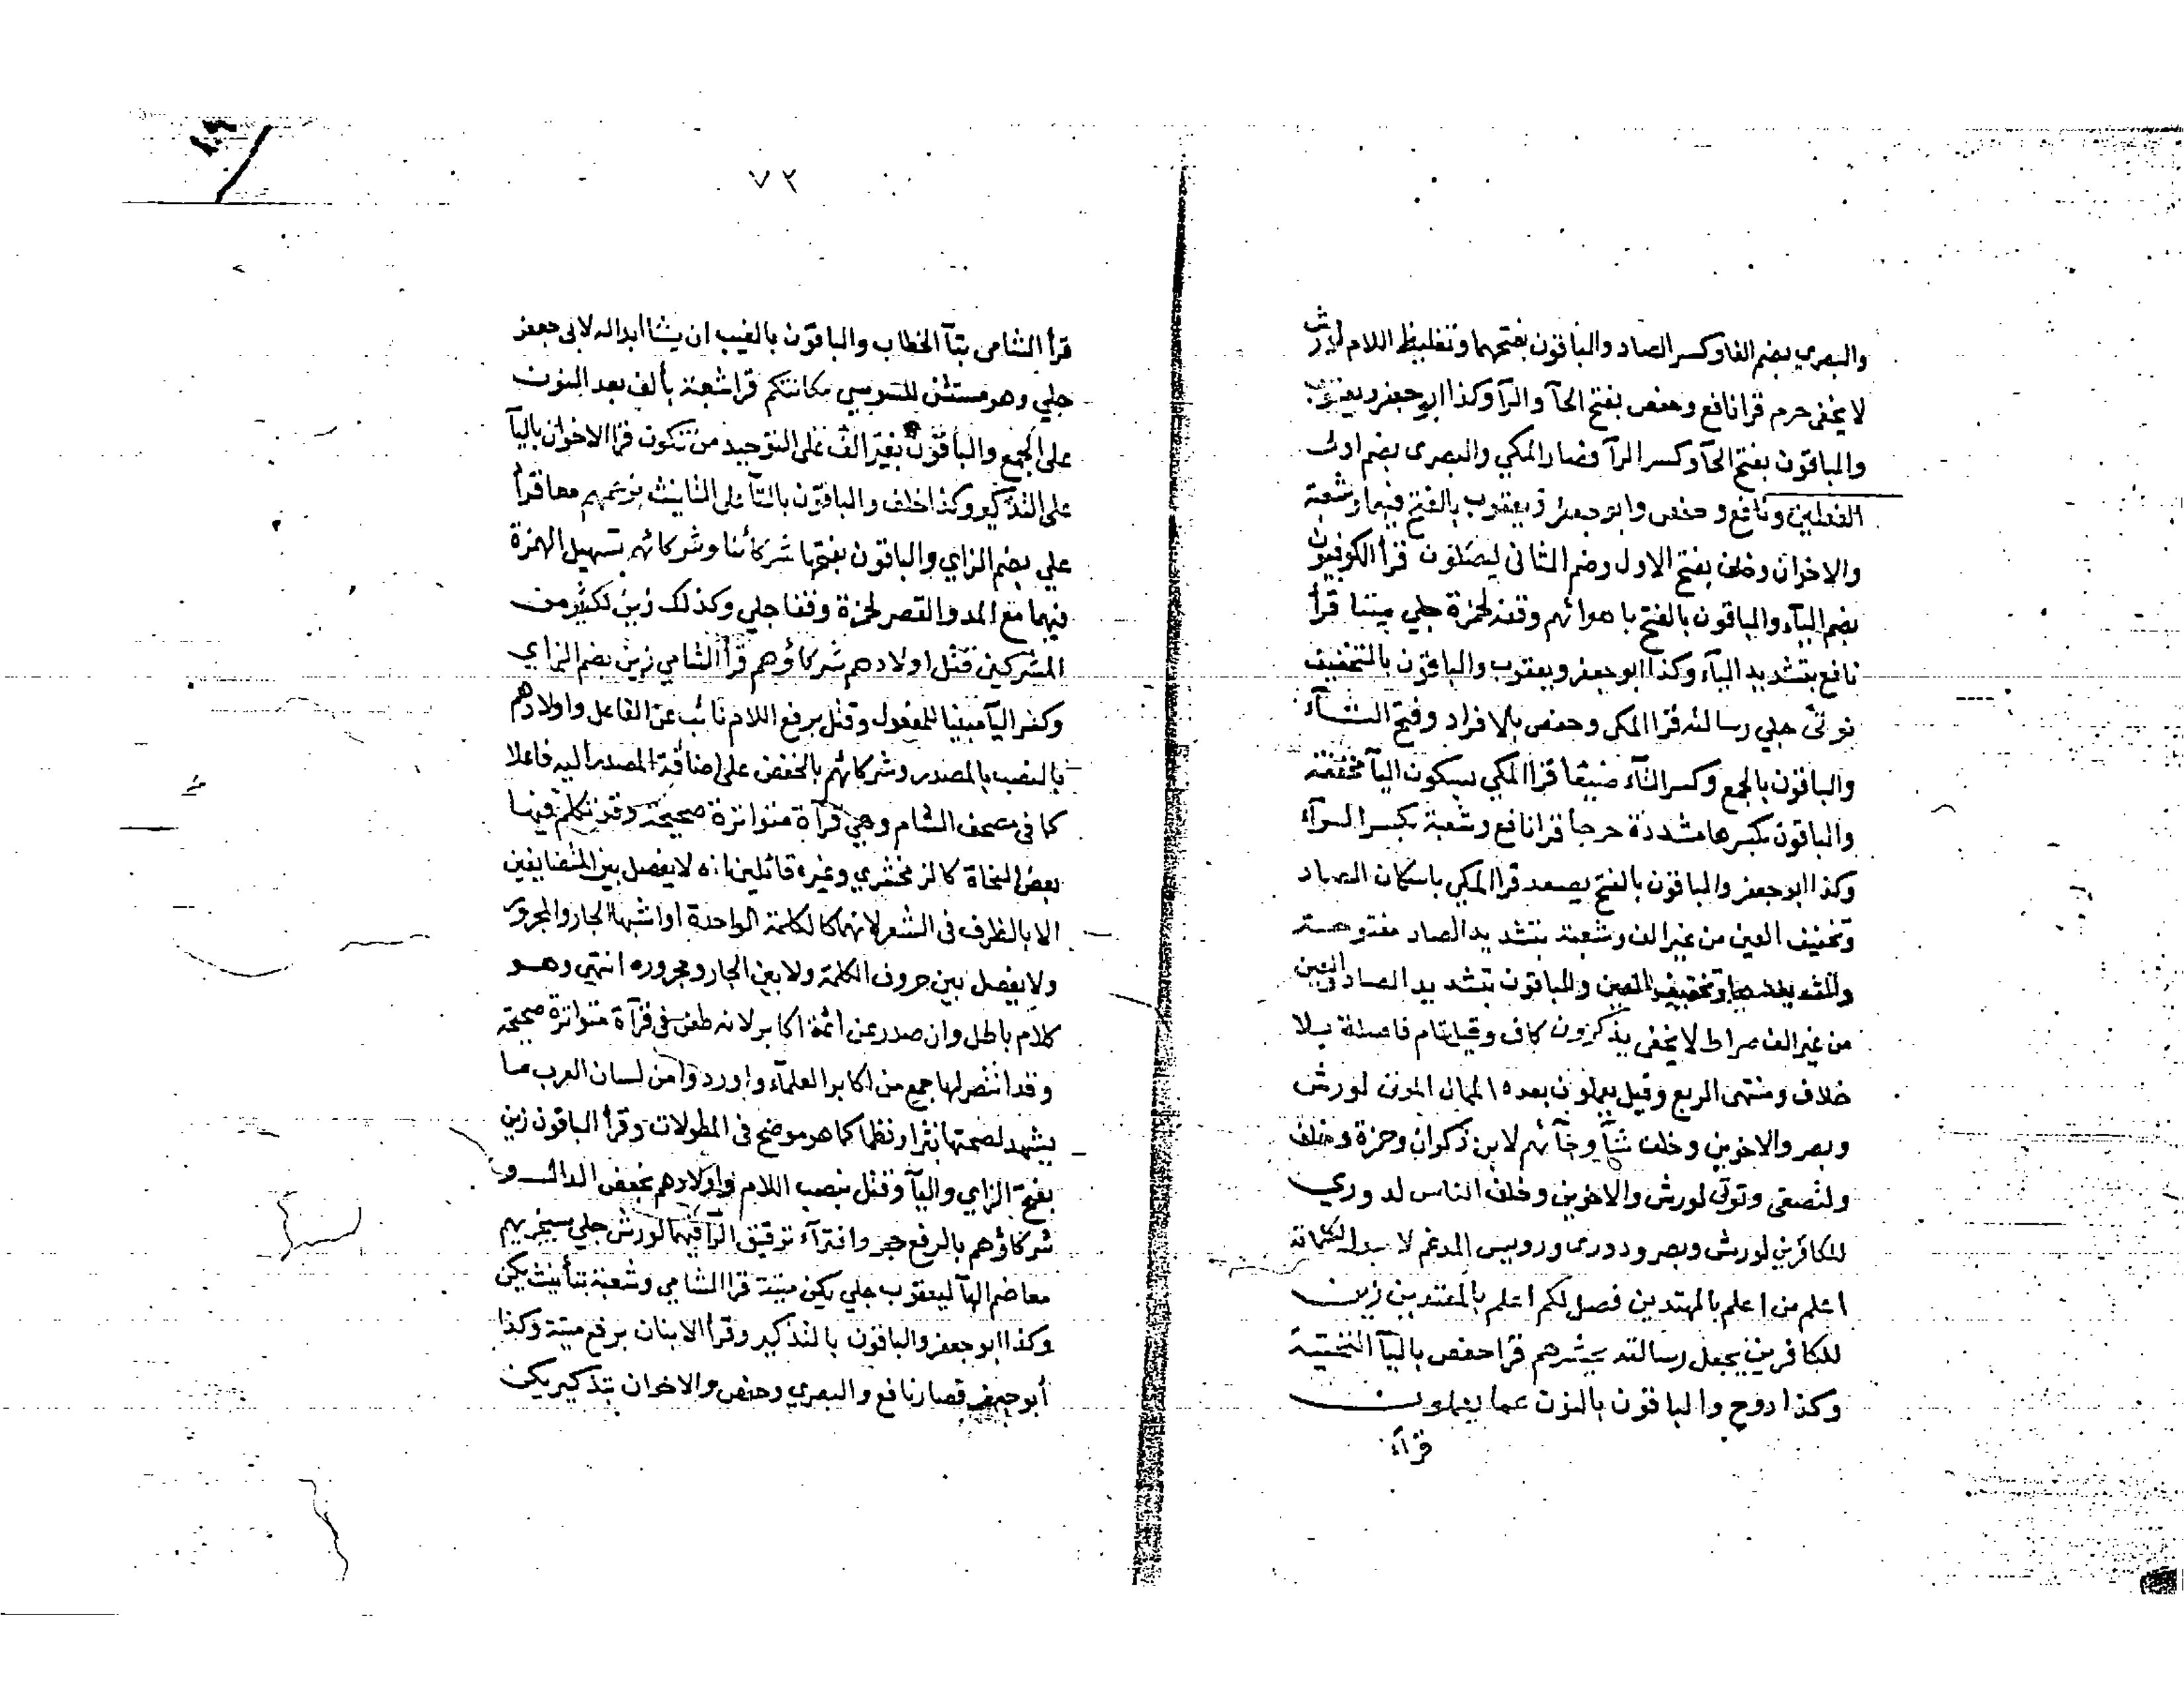 والبصري بضم الفا وكسر الصاد والباقون بفتحهما وتغليظ اللام لورش
لا يخفى حرم قرا نافع وحفص بفتح الحآ والرآ وكذا ابو جعفر ويعقوب
والباقون بفتح الحآ وكسر الرآ فصار المكي والبصرى بضم اول
الفعلين ونافع وحفص وابو جعفر ويعقوب بالفتح فيهما وشعبة
والاخوان وخلف بفتح الاول وضم الثانى ليضلون قرأ الكوفيون
بضم اليآء والباقون بالفتح باهوائهم وقفه لحمزة جلي ميتا قرأ
نافع بتشديد اليآء وكذا ابو جعفر ويعقوب والباقون بالتخفيف
نوتى جلي رسالته قرا المكى وحفص بالافراد وفتح التآء
والباقون بالجمع وكسر التآء ضيقا قرا المكي بسكون اليآ مخففة
والباقون بكسرها مشددة حرجا قرا نافع وشعبة بكسر الرآء
وكذا ابو جعفر والباقون بالفتح يصعد قرا المكي باسكان الصاد
وتخفيف العين من غير الف وشعبة بتشديد الصاد مفتوحة
والف بعدها وتخفيف العين والباقون بتشديد الصاد والعين
من غير الف صراط لا يخفى يذكرون كاف وقيل تام فاصلة بلا
خلاف ومنتهى الربع وقيل يعملون بعده الممال الموتى لورش
وبصر والاخوين وخلف شآ وجآئهم لابن ذكوان وحمزة وخلف
ولتصغى وتوتى لورش والاخوين وخلف الناس لدوري
للكافرين لورش وبصر ودورى ورويس المدغم لا مبدل لكلماته
اعلم من اعلم بالمهتدين فصل لكم اعلم بالمعتدين زين
للكافرين يجعل رسالته يحشرهم قرا حفص باليآ التحتية
وكذا روح والباقون بالنون عما يعملون
قرآء
٧٢
قرأ الشامى بتآ الخطاب والباقون بالغيب ان يشا ابداله لابى جعفر
جلي وهو مستثنى للسوسي مكانتكم قرا شعبة بألف بعد النون
على الجمع والباقون بغير الف على التوحيد من تكون قرا الاخوان باليآ
على التذكير وكذا خلف والباقون بالتآ على التانيث بزعمهم معا قرأ
علي بضم الزاي والباقون بفتحها شركائنا وشركائهم تسهيل الهمزة
فيهما مع المد والقصر لحمزة وقفا جلي وكذلك زين لكثير من
المشركين قتل اولادهم شركاؤهم قرأ الشامي زين بضم الزاي
وكسر اليآ مبنيا للمفعول وقتل برفع اللام نائب عن الفاعل واولادهم
بالنصب بالمصدر وشركائهم بالخفض على اضافة المصدر اليه فاعلا
كما فى مصحف الشام وهي قرآة متواترة صحيحة وقد تكلم فيها
بعض النحاة كالزمخشري وغيره قائلين انه لا يفصل بين المتضايفين
الا بالظرف فى الشعر لانهما كالكلمة الواحدة او اشبها الجار والمجرور
ولا يفصل بين حروف الكلمة ولا بين الجار ومجروره انتهى وهو
كلام باطل وان صدر عن ائمة اكابر لانه طعن فى قرآة متواترة صحيحة
وقد انتصر لها جمع من اكابر العلمآء واوردوا من لسان العرب ما
يشهد لصحتها نثرا ونظما كما هو موضح فى المطولات وقرأ الباقون زين
بفتح الزاي واليآ وقتل بنصب اللام واولادهم بخفض الدال و
شركاؤهم بالرفع حجر وافترآء ترقيق الرآ فيهما لورش جلي سيجزيهم
معا ضم الهآ ليعقوب جلي يكن ميتة قرا الشامي وشعبة بتأنيث يكن
وكذا ابو جعفر والباقون بالتذكير وقرأ الابنان برفع ميتة وكذا
أبو جعفر فصار نافع والبصري وحفص والاخوان بتذكير يكن